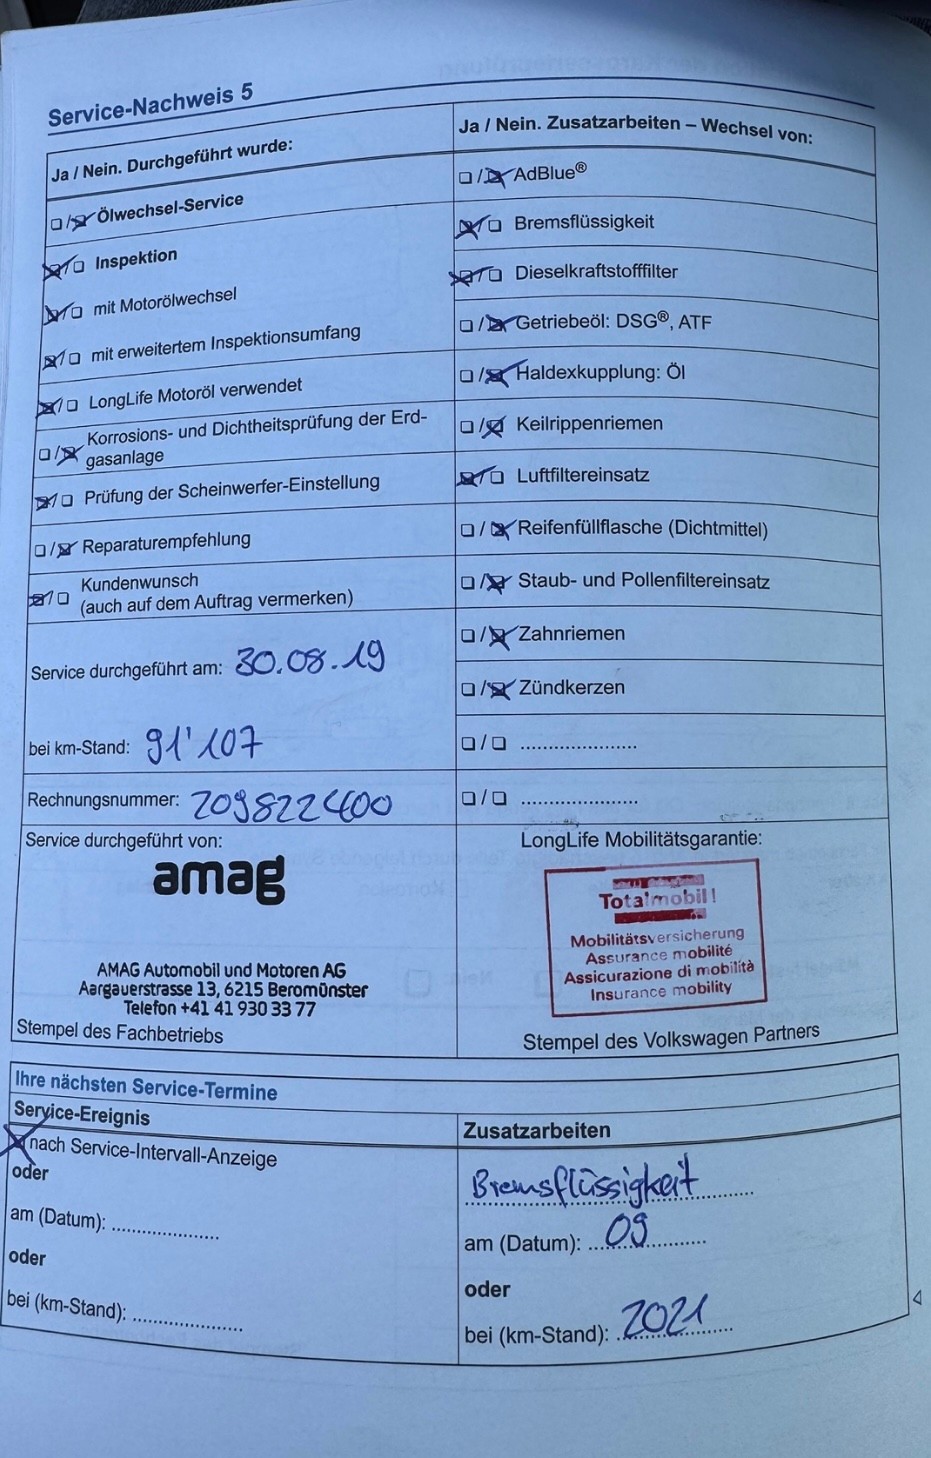 Service-Nachweis 5
Ja / Nein. Durchgeführt wurde:
☐/☒ Ölwechsel-Service
☒/☐ Inspektion
☒/☐ mit Motorölwechsel
☒/☐ mit erweitertem Inspektionsumfang
☒/☐ LongLife Motoröl verwendet
☐/☒ Korrosions- und Dichtheitsprüfung der Erd-
gasanlage
☒/☐ Prüfung der Scheinwerfer-Einstellung
☐/☒ Reparaturempfehlung
☒/☐ Kundenwunsch
(auch auf dem Auftrag vermerken)
Service durchgeführt am: 30.08.19
bei km-Stand: 91'107
Rechnungsnummer: 209822400
Service durchgeführt von:
amag
AMAG Automobil und Motoren AG
Aargauerstrasse 13, 6215 Beromünster
Telefon +41 41 930 33 77
Stempel des Fachbetriebs
Ja / Nein. Zusatzarbeiten – Wechsel von:
☐/☒ AdBlue®
☒/☐ Bremsflüssigkeit
☒/☐ Dieselkraftstofffilter
☐/☒ Getriebeöl: DSG®, ATF
☐/☒ Haldexkupplung: Öl
☐/☒ Keilrippenriemen
☒/☐ Luftfiltereinsatz
☐/☒ Reifenfüllflasche (Dichtmittel)
☐/☒ Staub- und Pollenfiltereinsatz
☐/☒ Zahnriemen
☐/☒ Zündkerzen
☐/☐ .....................
☐/☐ .....................
LongLife Mobilitätsgarantie:
Totalmobil!
Mobilitätsversicherung
Assurance mobilité
Assicurazione di mobilità
Insurance mobility
Stempel des Volkswagen Partners
Ihre nächsten Service-Termine
Service-Ereignis
☒ nach Service-Intervall-Anzeige
oder
am (Datum): ....................
oder
bei (km-Stand): ....................
Zusatzarbeiten
Bremsflüssigkeit
am (Datum): 09
oder
bei (km-Stand): 2021